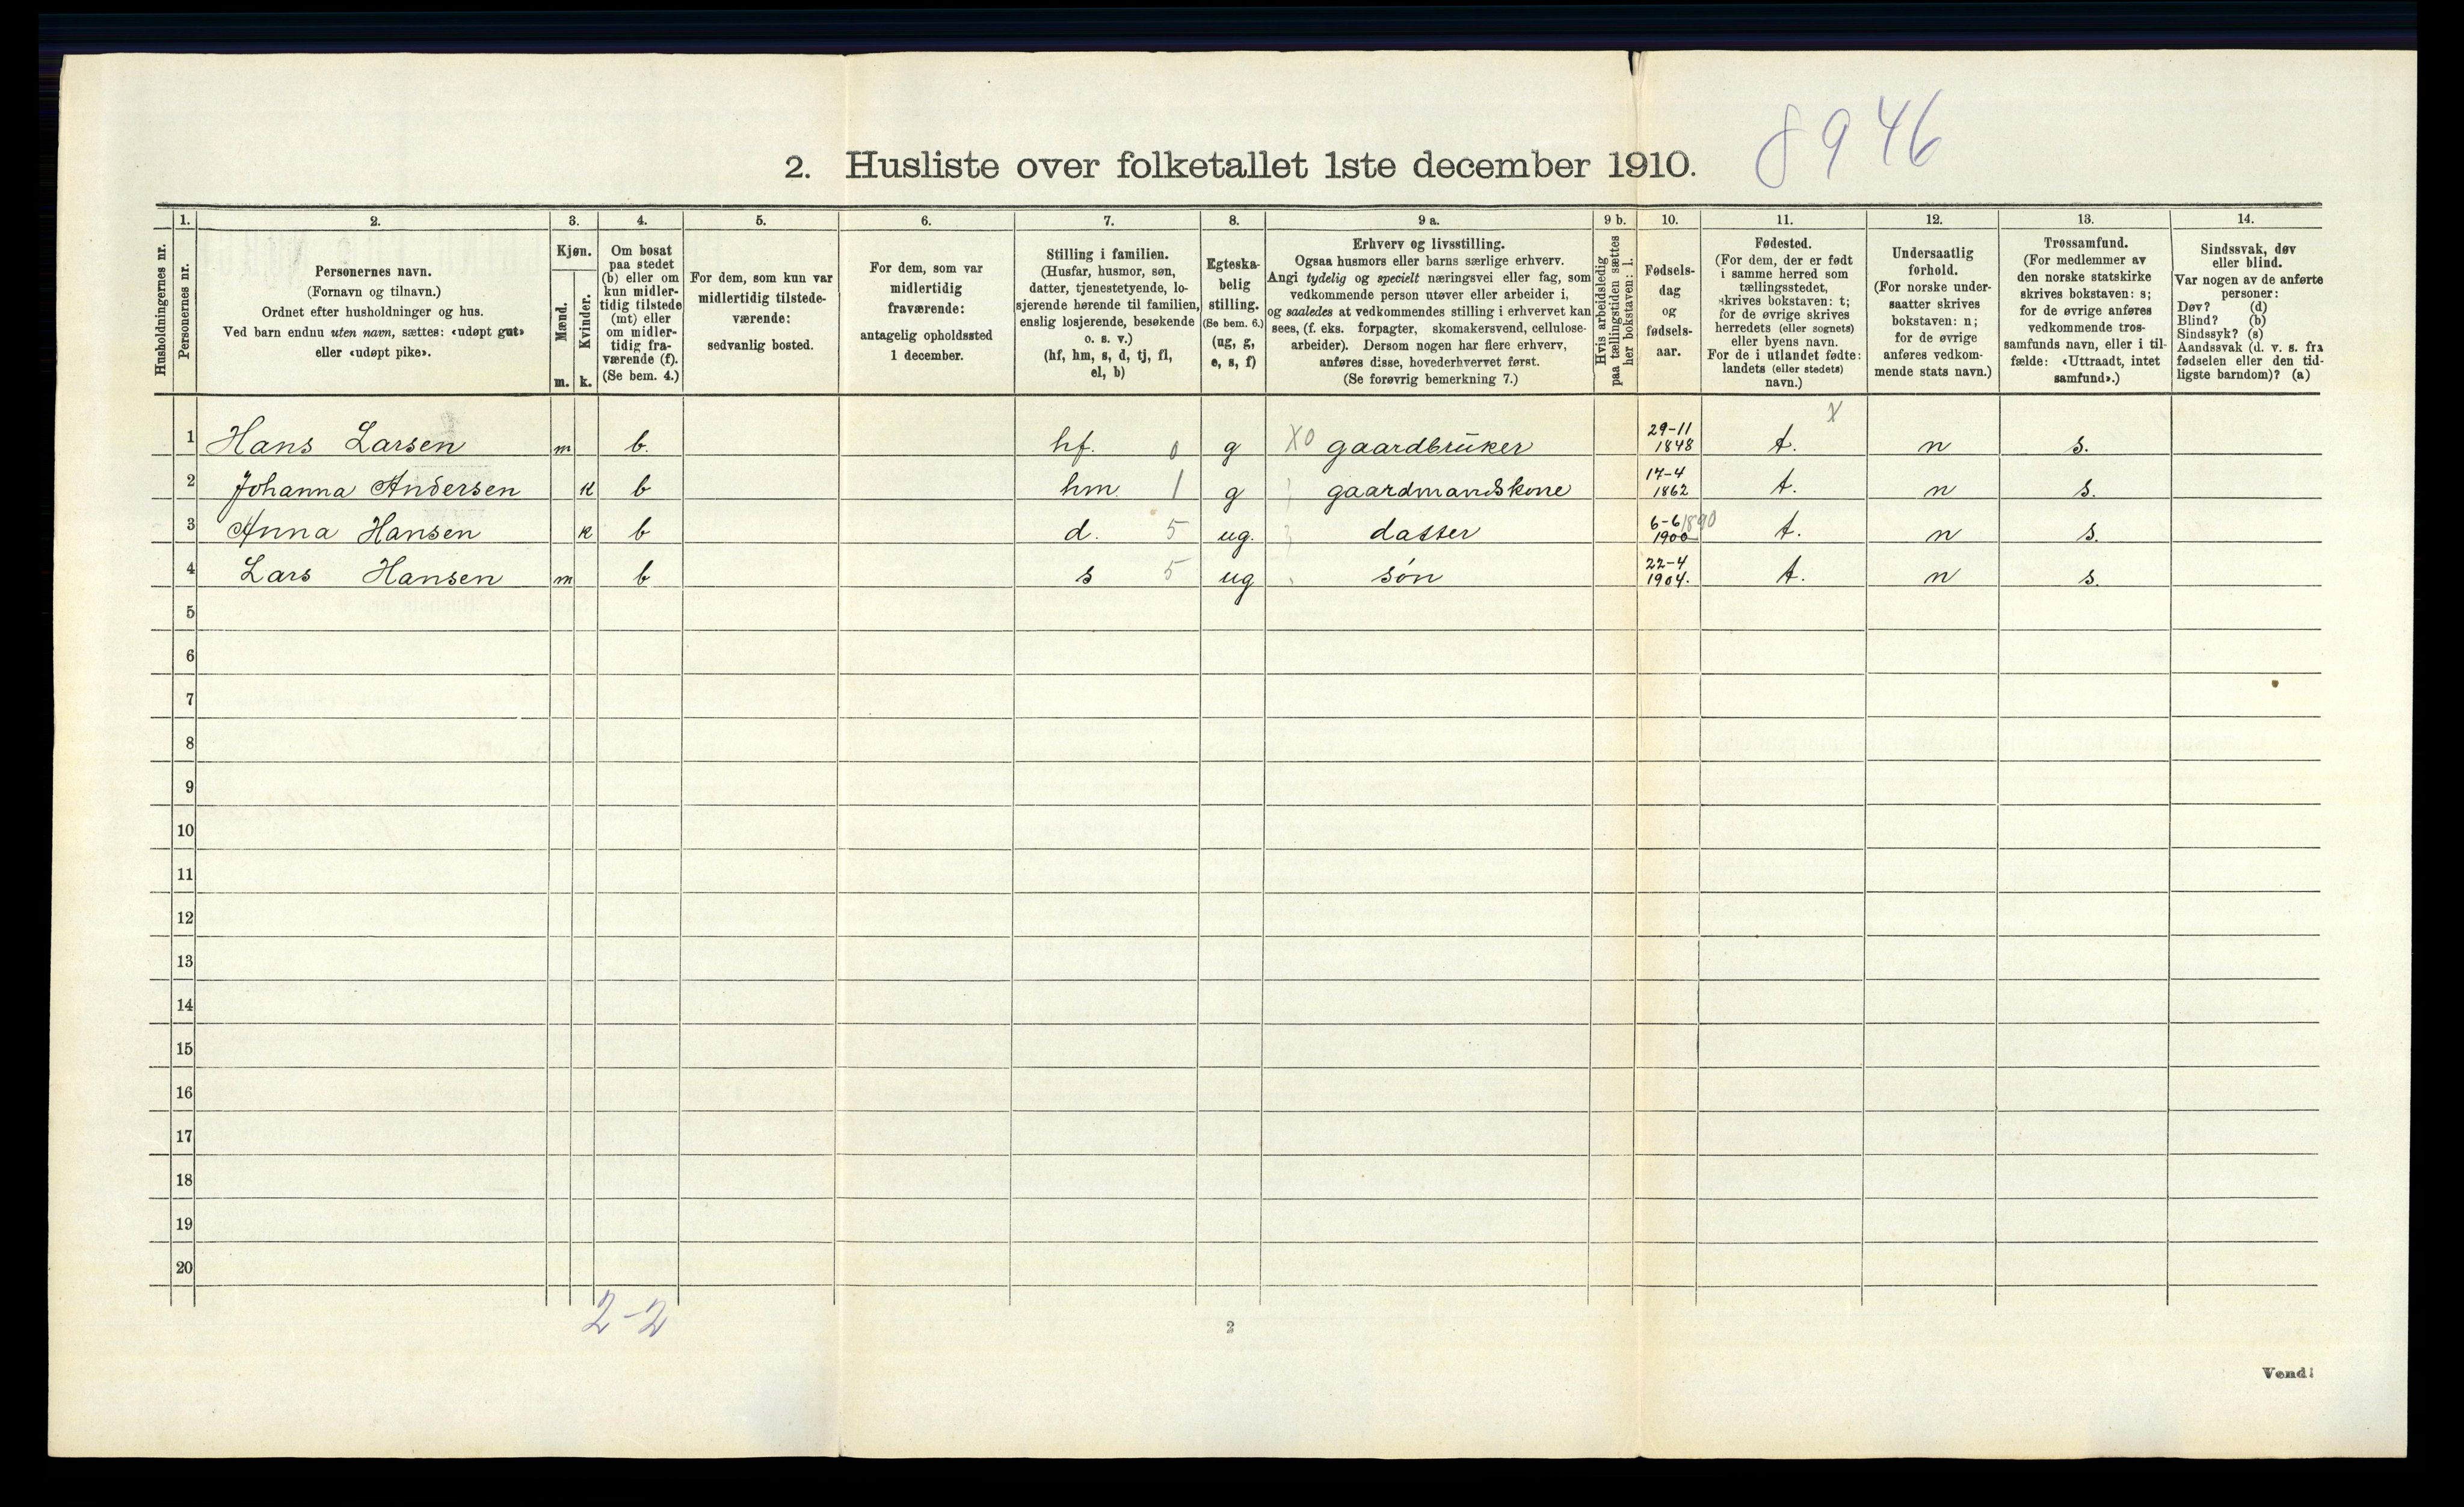 8946
2. Husliste over folketallet 1ste december 1910.
Husholdningernes nr.
1.
Personernes nr.
2.
Personernes navn.
(Fornavn og tilnavn.)
Ordnet efter husholdninger og hus.
Ved barn endnu uten navn, sættes: «udøpt gut»
eller «udøpt pike».
3.
Kjøn.
Mænd.
m.
Kvinder.
k.
4.
Om bosat
paa stedet
(b) eller om
kun midler-
tidig tilstede
(mt) eller
om midler-
tidig fra-
værende (f).
(Se bem. 4.)
5.
For dem, som kun var
midlertidig tilstede-
værende:
sedvanlig bosted.
6.
For dem, som var
midlertidig
fraværende:
antagelig opholdssted
1 december.
7.
Stilling i familien.
(Husfar, husmor, søn,
datter, tjenestetyende, lo-
sjerende hørende til familien,
enslig losjerende, besøkende
o. s. v.)
(hf, hm, s, d, tj, fl,
el, b)
8.
Egteska-
belig
stilling.
(Se bem. 6.)
(ug, g,
e, s, f)
9 a.
Erhverv og livsstilling.
Ogsaa husmors eller barns særlige erhverv.
Angi tydelig og specielt næringsvei eller fag, som
vedkommende person utøver eller arbeider i,
og saaledes at vedkommendes stilling i erhvervet kan
sees, (f. eks. forpagter, skomakersvend, cellulose-
arbeider). Dersom nogen har flere erhverv,
anføres disse, hovederhvervet først.
(Se forøvrig bemerkning 7.)
9 b.
Hvis arbeidsledig
paa tællingstiden sættes
her bokstaven: l.
10.
Fødsels-
dag
og
fødsels-
aar.
11.
Fødested.
(For dem, der er født
i samme herred som
tællingsstedet,
skrives bokstaven: t;
for de øvrige skrives
herredets (eller sognets)
eller byens navn.
For de i utlandet fødte:
landets (eller stedets)
navn.)
12.
Undersaatlig
forhold.
(For norske under-
saatter skrives
bokstaven: n;
for de øvrige
anføres vedkom-
mende stats navn.)
13.
Trossamfund.
(For medlemmer av
den norske statskirke
skrives bokstaven: s;
for de øvrige anføres
vedkommende tros-
samfunds navn, eller i til-
fælde: «Uttraadt, intet
samfund».)
14.
Sindssvak, døv
eller blind.
Var nogen av de anførte
personer:
Døv? (d)
Blind? (b)
Sindssyk? (s)
Aandssvak (d. v. s. fra
fødselen eller den tid-
ligste barndom)? (a)
1 Hans Larsen m b. hf. 0 g X0 gaardbrüker 29-11 1848 t. X n s.
2 Johanna Andersen k b hm 1 g gaardmandskone 17-4 1862 t. n s.
3 Anna Hansen k b d. 5 ug. datter 6-6 1890 1900 t. n s.
4 Lars Hansen m b s 5 ug søn 22-4 1904. t. n s.
5
6
7
8
9
10
11
12
13
14
15
16
17
18
19
20
2-2
2
Vend!